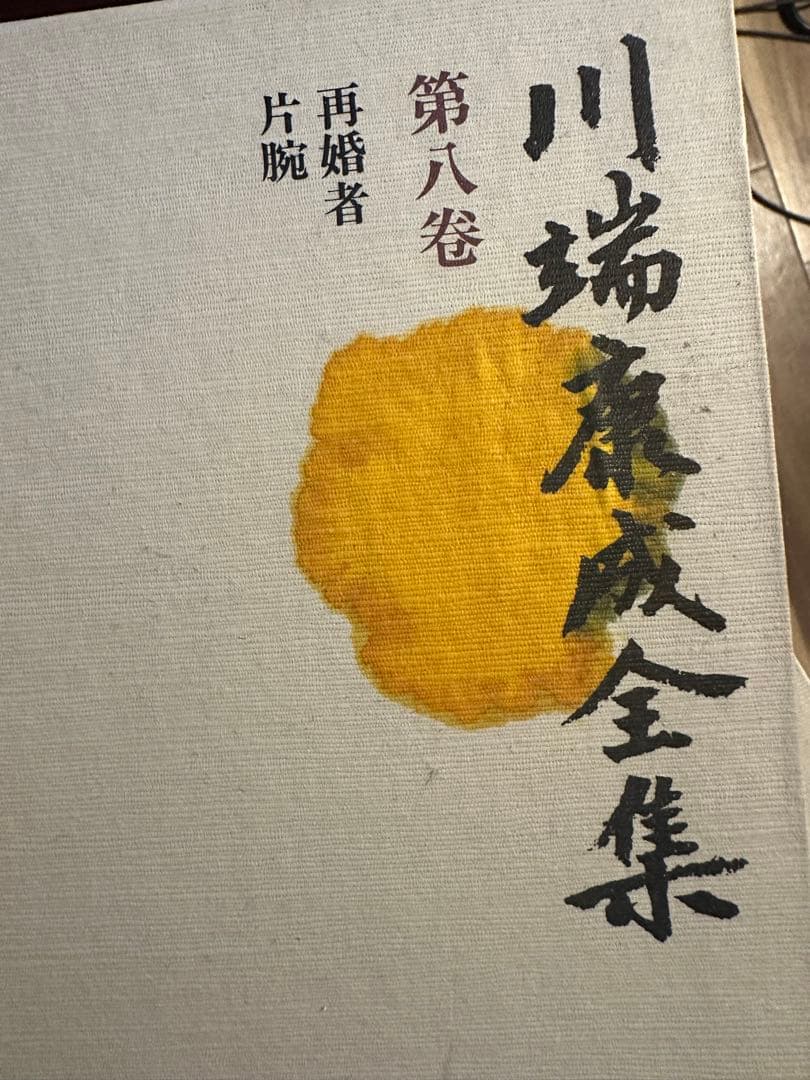 川端康成全集
第八巻
再婚者
片腕